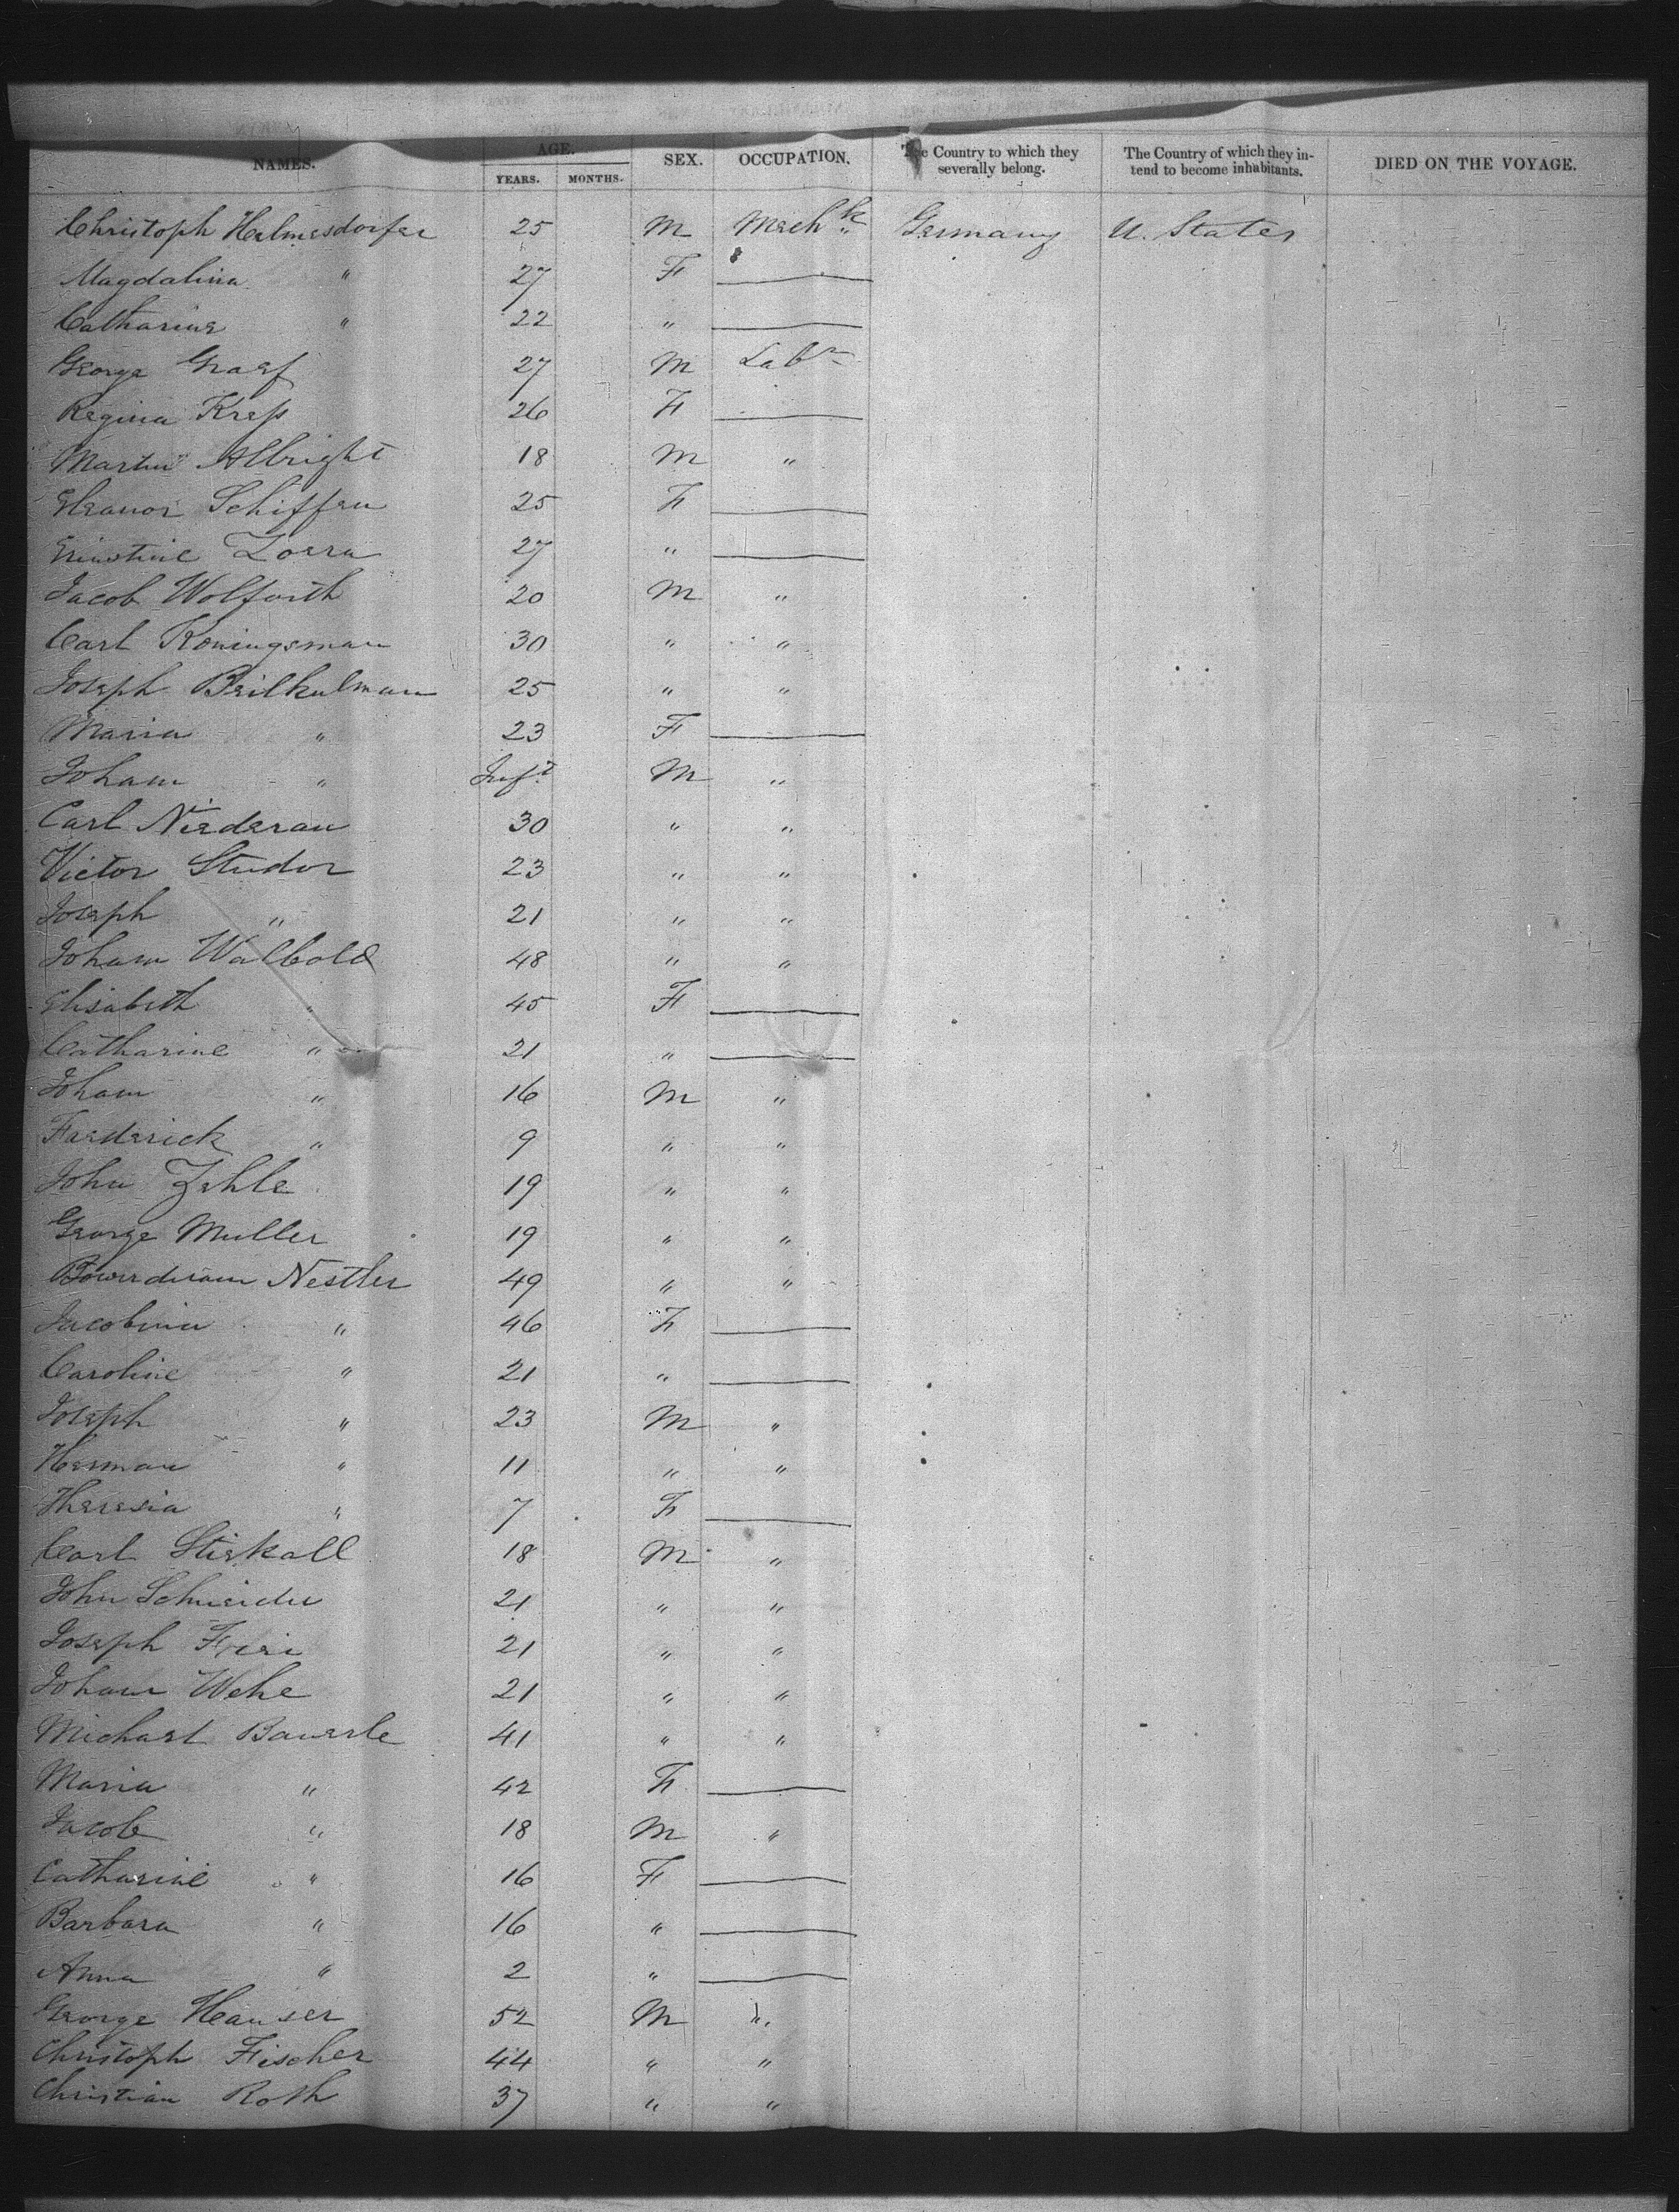 NAMES. AGE. YEARS. MONTHS. SEX. OCCUPATION. The Country to which they severally belong. The Country of which they intend to become inhabitants. DIED ON THE VOYAGE.
Christoph Helmesdorfer 25 M Mech Germany U. States
Magdalina " 27 F —
Catharine " 22 " —
George Graef 27 M Labr
Regina Kress 26 F —
Martin Albright 18 M "
Eleanor Schiffen 25 F —
Ernstine Zoera 27 " —
Jacob Wolfarth 20 M "
Carl Koningsman 30 " "
Joseph Beilkulman 25 " "
Maria " 23 F —
Joham " Inft M "
Carl Niederau 30 " "
Victor Studor 23 " "
Joseph " 21 " "
Joham Walbold 48 " "
Elisabeth " 45 F —
Catharine " 21 " —
Joham " 16 M "
Frederick " 9 " "
John Zehle 19 " "
George Muller 19 " "
Nestler 49 " "
Jacobina " 46 F —
Caroline " 21 " —
Joseph " 23 M "
Herman " 11 " "
Theresia " 7 F —
Carl Stiskall 18 M "
John Schneider 21 " "
Joseph Frei 21 " "
Joham Wehe 21 " "
Michael Bauerle 41 " "
Maria " 42 F —
Jacob " 18 M "
Catharine " 16 F —
Barbara " 16 " —
Anna " 2 " —
George Hauser 52 M "
Christoph Fischer 44 " "
Christian Roth 37 " "